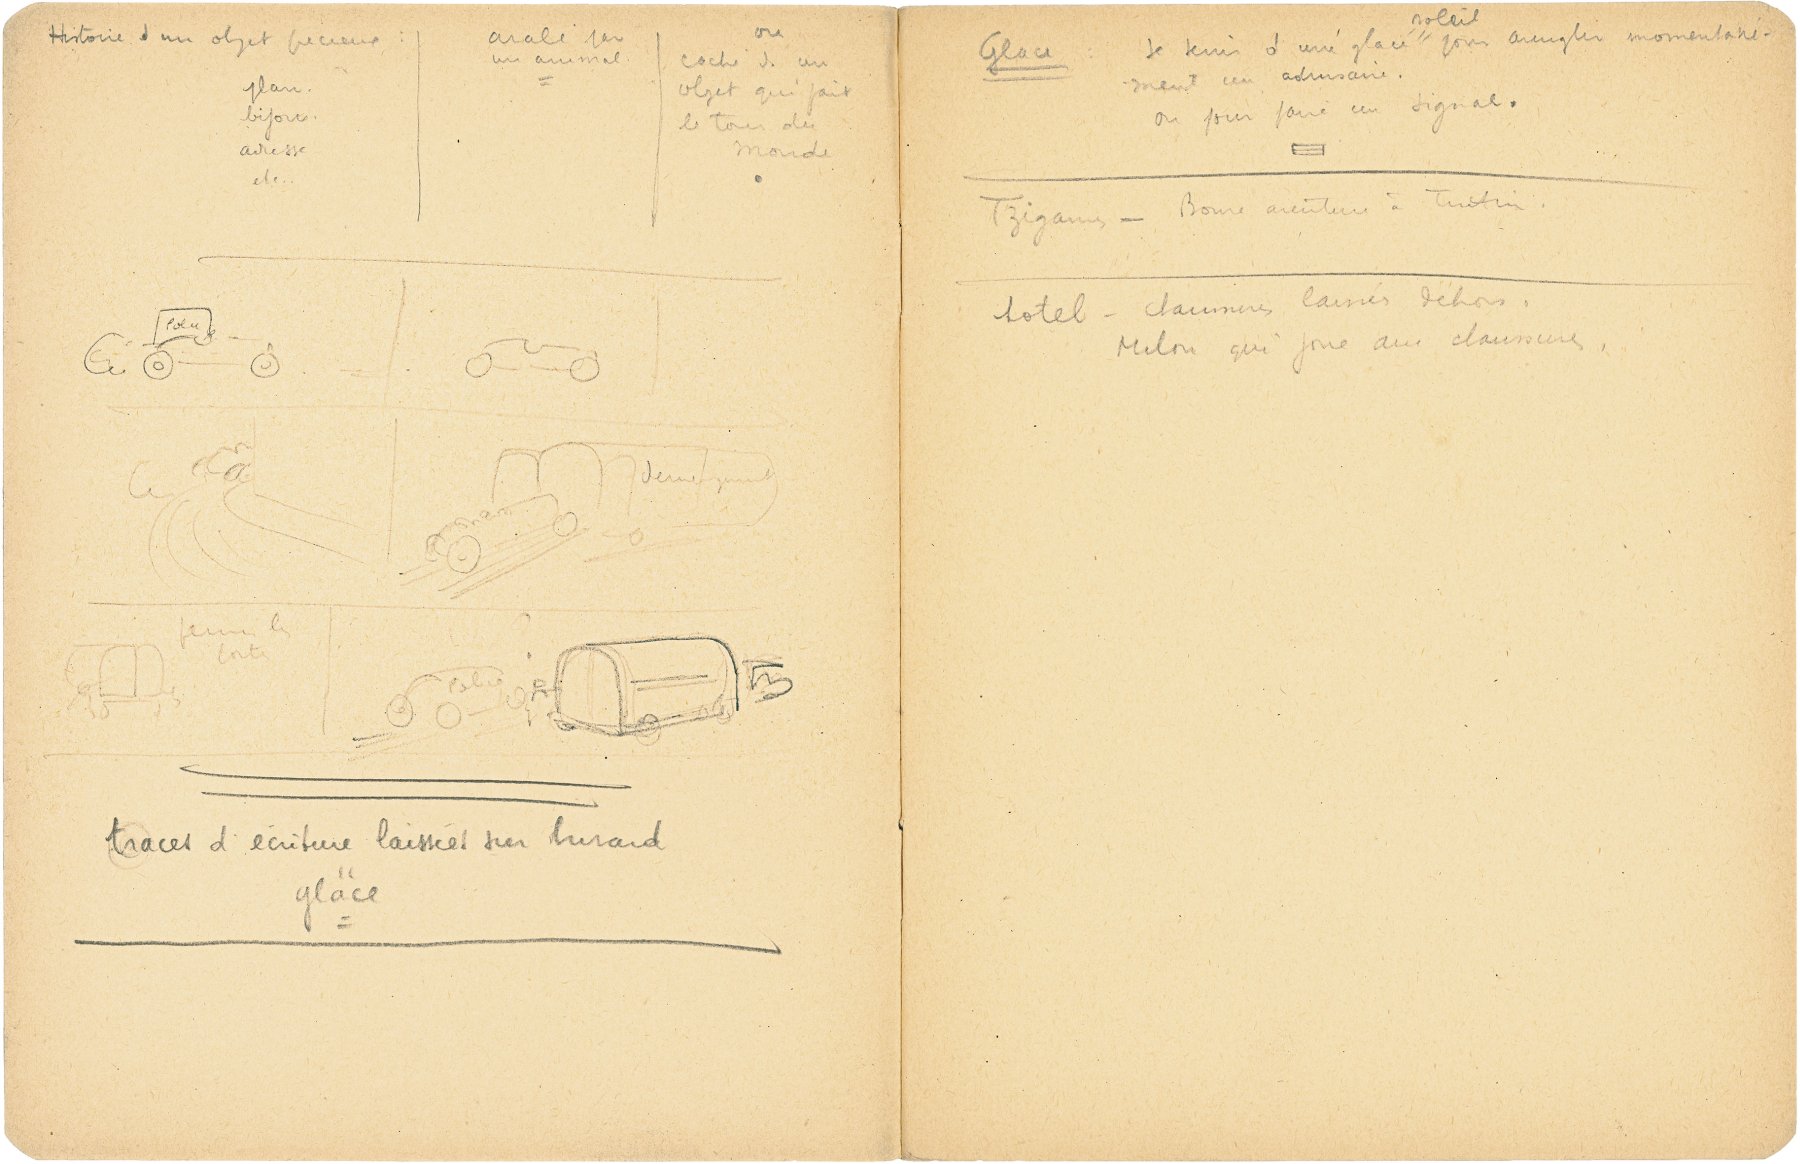 Histoire d'un objet précieux :
plan.
bijou.
adresse
etc..
avalé par
un animal.
ou
caché ds un
objet qui fait
le tour du
monde
Police
fermer les
Police
traces d'écriture laissées sur buvard
glace
Glace : se servir d'une glace " soleil " pour aveugler momentané-
-ment un adversaire.
ou pour faire un signal.
Tziganes — Bonne aventure à Tintin.
Hotel - chaussures laissées déhors.
Milou qui joue aux chaussures.